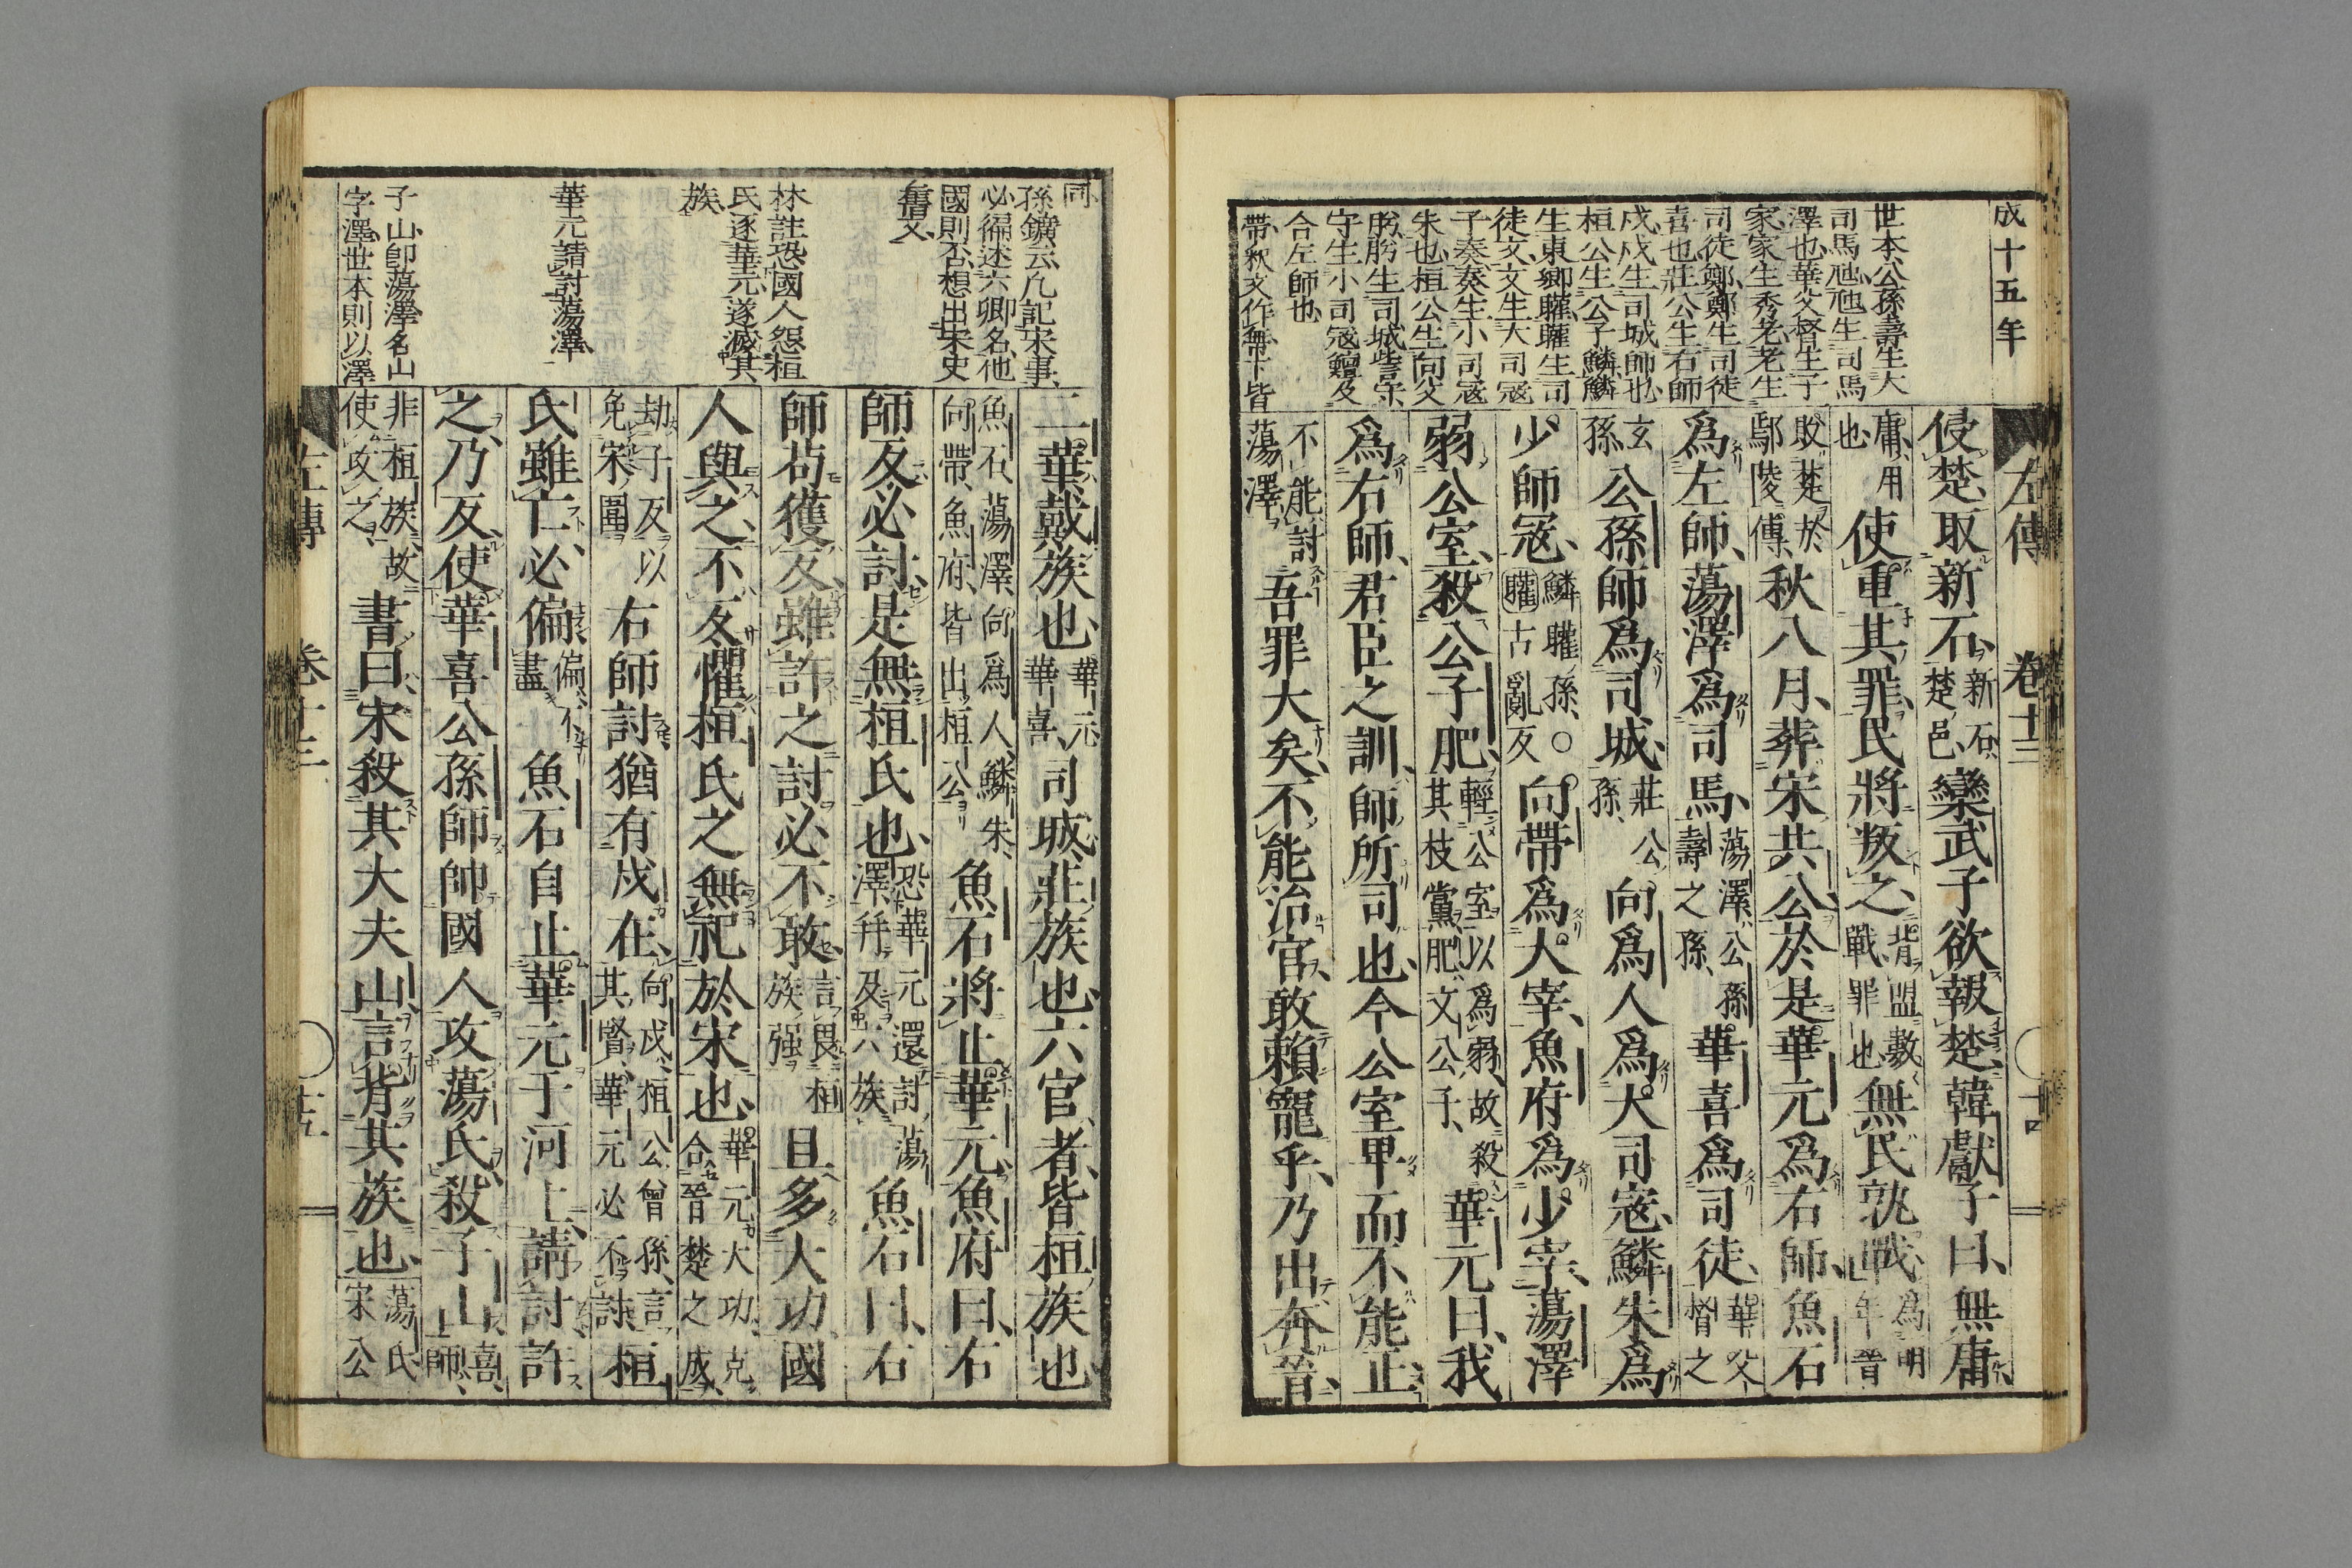 成十五年
世本公孫壽生大
司馬虺虺生司馬
澤也華父督生子
家家生秀老老生
司徒鄭鄭生司徒
喜也莊公生右師
戊戊生司城師也
桓公生公子鱗鱗
生東鄉矔矔生司
徒文文生大司寇
子奏奏生小司寇
朱也桓公生向父
肹肹生司城訾守
守生小司寇鱣及
合左師也
帶釈文作無下皆
左傳 卷十三 十四
侵楚取新石新石楚邑欒武子欲報楚韓獻子曰無庸
庸用也使重其罪民將叛之背盟數戰罪也無民孰戰爲明年晉
敗楚於鄢陵傳秋八月葬宋共公於是華元爲右師魚石
爲左師蕩澤爲司馬蕩澤公孫壽之孫華喜爲司徒華父督之
玄孫公孫師爲司城莊公孫向爲人爲大司寇鱗朱爲
少師寇鱗矔孫○矔古亂反向帶爲大宰魚府爲少宰蕩澤
弱公室殺公子肥輕公室以爲弱故殺其枝黨肥文公子華元曰我
爲右師君臣之訓師所司也今公室卑而不能止
不能討蕩澤吾罪大矣不能治官敢賴寵乎乃出奔晉
同
孫鑛云凡記宋事
必徧述六卿名他
國則否想出宋史
舊文
林註恐國人怨桓
氏逐華元遂滅其
族
華元請討蕩澤
子山卽蕩澤名山
字澤世本則以澤
二華戴族也華元華喜司城莊族也六官者皆桓族也
魚石蕩澤向爲人鱗朱向帶魚府皆出桓公魚石將止華元魚府曰右
師反必討是無桓氏也恐華元還討蕩澤幷及六族魚石曰右
師苟獲反雖許之討必不敢言畏桓族强且多大功國
人與之不反懼桓氏之無祀於宋也華元大功克合晉楚之成
劫子反以免宋圍右師討猶有戌在向戌桓公曾孫言其賢華元必不討桓
氏雖亡必偏偏不盡魚石自止華元于河上請討許
之乃反使華喜公孫師帥國人攻蕩氏殺子山喜師
非桓族故使攻之書曰宋殺其大夫山言背其族也蕩氏宋公
左傳 卷十三 十五